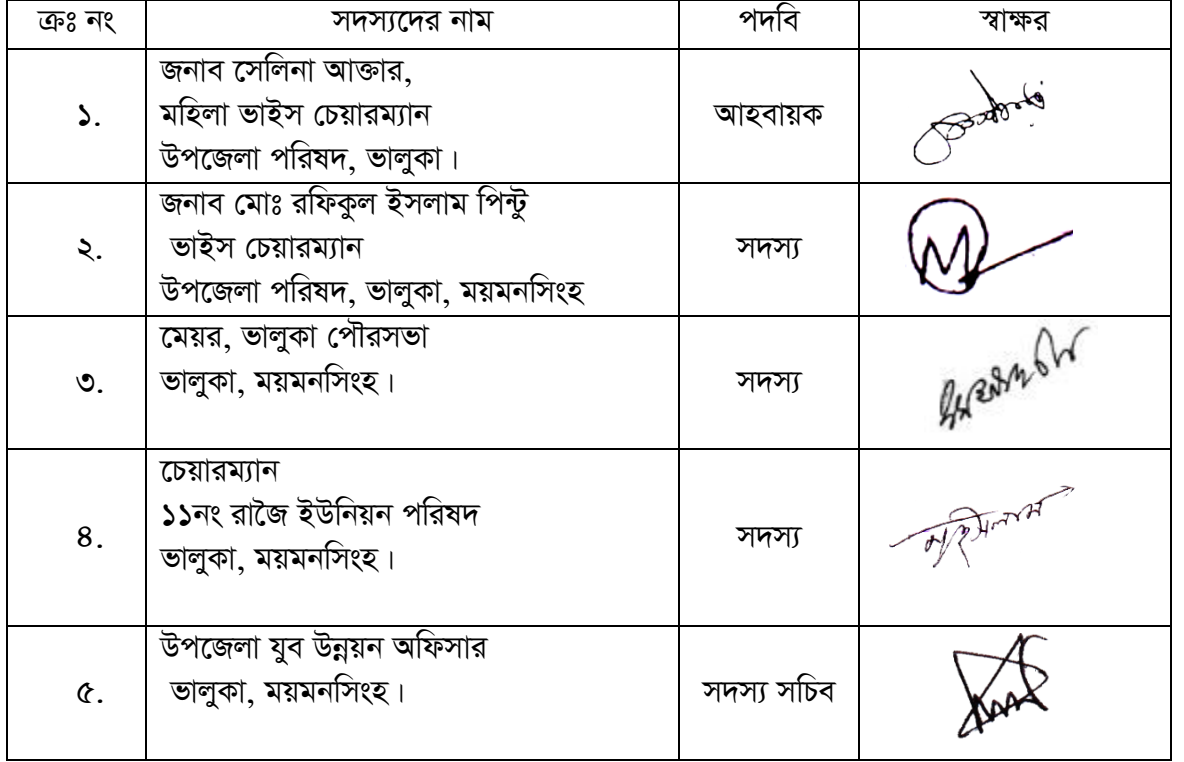 ক্রঃ নং সদস্যদের নাম পদবি স্বাক্ষর
১. জনাব সেলিনা আক্তার,
মহিলা ভাইস চেয়ারম্যান আহবায়ক
উপজেলা পরিষদ, ভালুকা।
২. জনাব মোঃ রফিকুল ইসলাম পিন্টু
ভাইস চেয়ারম্যান সদস্য
উপজেলা পরিষদ, ভালুকা, ময়মনসিংহ
৩. মেয়র, ভালুকা পৌরসভা
ভালুকা, ময়মনসিংহ। সদস্য
৪. চেয়ারম্যান
১১নং রাজৈ ইউনিয়ন পরিষদ সদস্য
ভালুকা, ময়মনসিংহ।
৫. উপজেলা যুব উন্নয়ন অফিসার
ভালুকা, ময়মনসিংহ। সদস্য সচিব